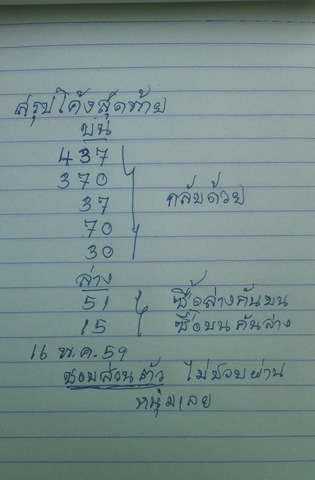 สรุปโค้งสุดท้าย
บน
437
370
37 กลับด้วย
70
30
ล่าง
51 ซื้อล่างกันบน
15 ซื้อบนกันล่าง
16 พ.ค.59
ชอบส่วนตัว ไม่ชอบผ่าน
หนุ่มเลย